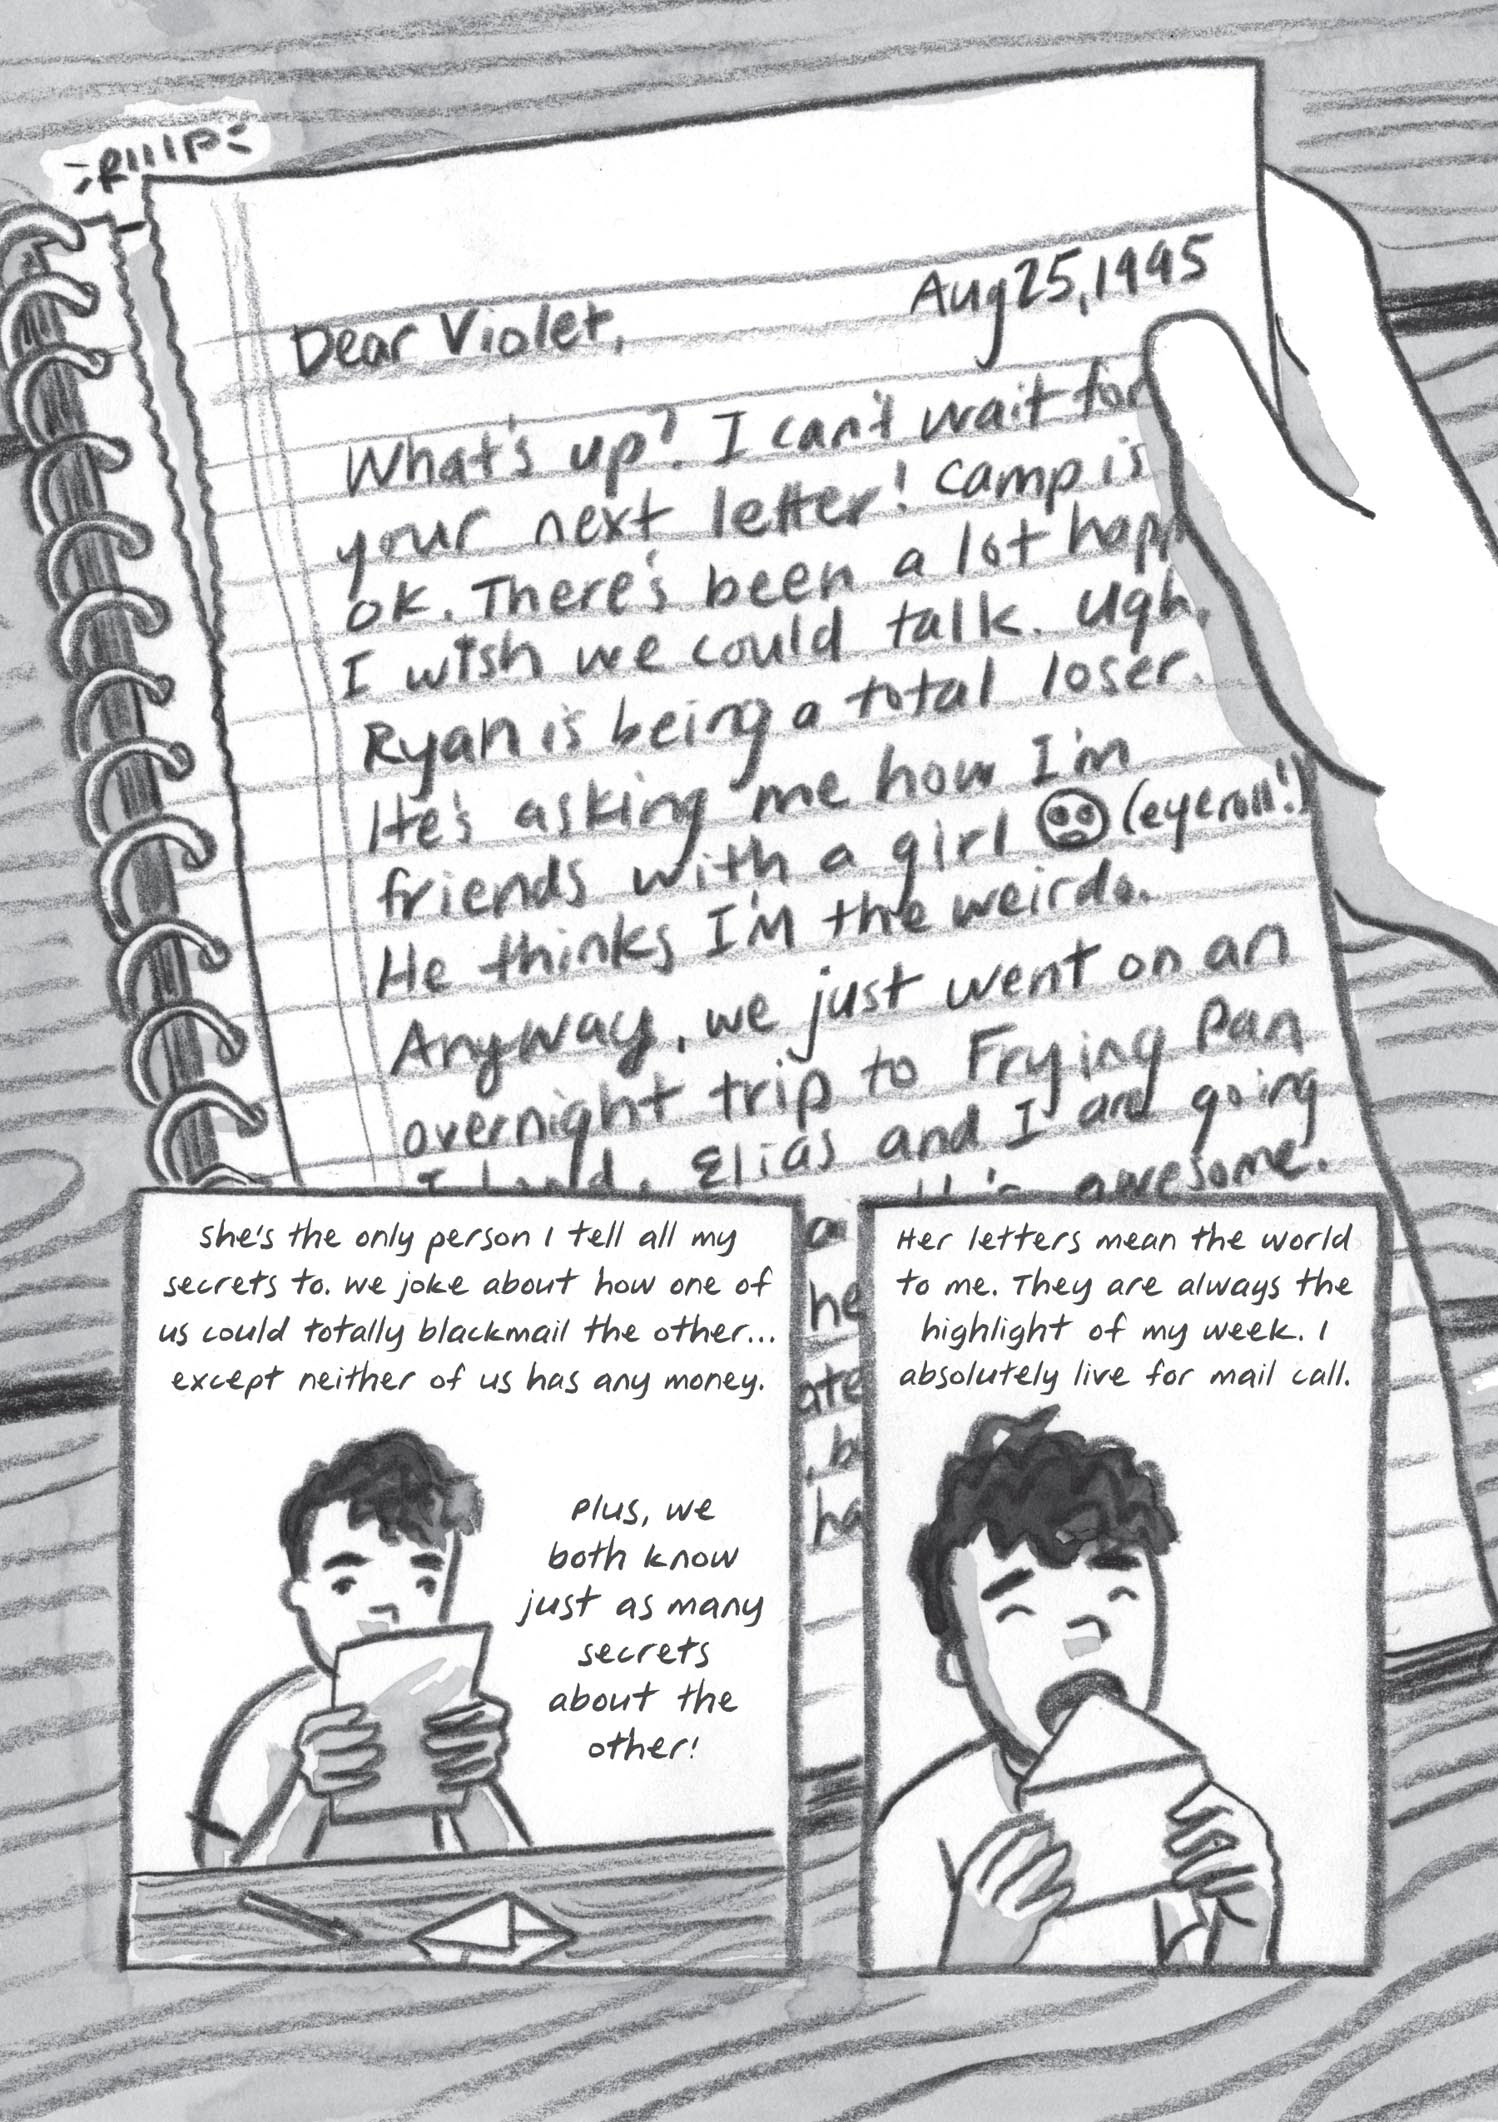 RIIIP
Aug 25, 1995
Dear Violet,
What's up? I can't wait for
your next letter! Camp is
ok. There's been a lot happ
I wish we could talk. Ugh,
Ryan is being a total loser.
He's asking me how I'm
friends with a girl (eyeroll!)
He thinks I'M the weirdo.
Anyway, we just went on an
overnight trip to Frying Pan
Island. Elias and I are going
awesome.
She's the only person I tell all my
secrets to. We joke about how one of
us could totally blackmail the other...
except neither of us has any money.
Plus, we
both know
just as many
secrets
about the
other!
he
ate
, b
ha
Her letters mean the world
to me. They are always the
highlight of my week. I
absolutely live for mail call.